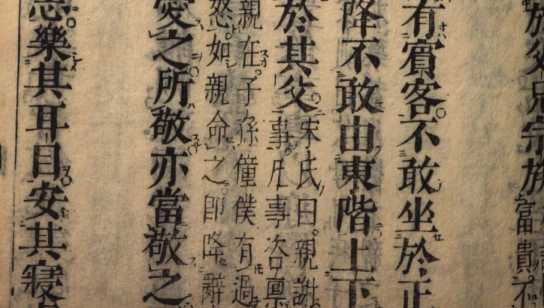 於父兄宗族富貴不
有賓客不敢坐於正
降不敢由東階上下
於其父
宋氏曰親謝
事凡事咨稟
親在子孫僮僕有過
怒如親命之卽降辭
愛之所敬亦當敬之
樂其耳目安其寢